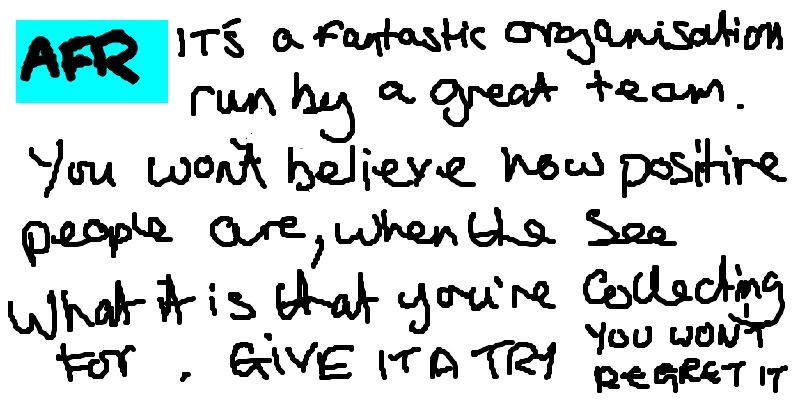 AFR IT's a fantastic organisation
run by a great team.
You won't believe how positive
people are, when the see
what it is that you're collecting
for. GIVE IT A TRY
YOU WON'T
REGRET IT